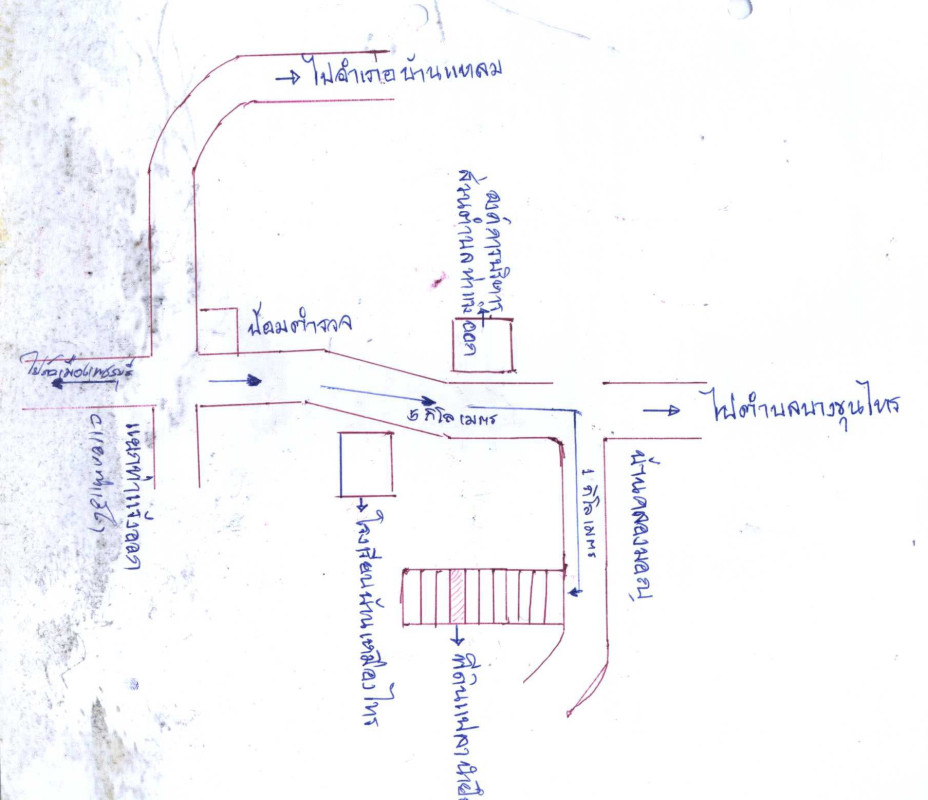 → ไปอำเภอบ้านแหลม
องค์การบริหาร
ส่วนตำบลท่าแร้งออก
ป้อมตำรวจ
ไปตัวเมืองเพชรบุรี
5 กิโลเมตร
→ ไปตำบลบางขุนไทร
แยกท่าแร้งออก
1 กิโลเมตร
บ้านคลองมอญ
โรงเรียนบ้านเหมืองไทร
ที่ดินแปลง